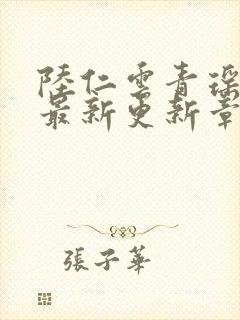 陸仁雲青瑶
最新更新章
張子華